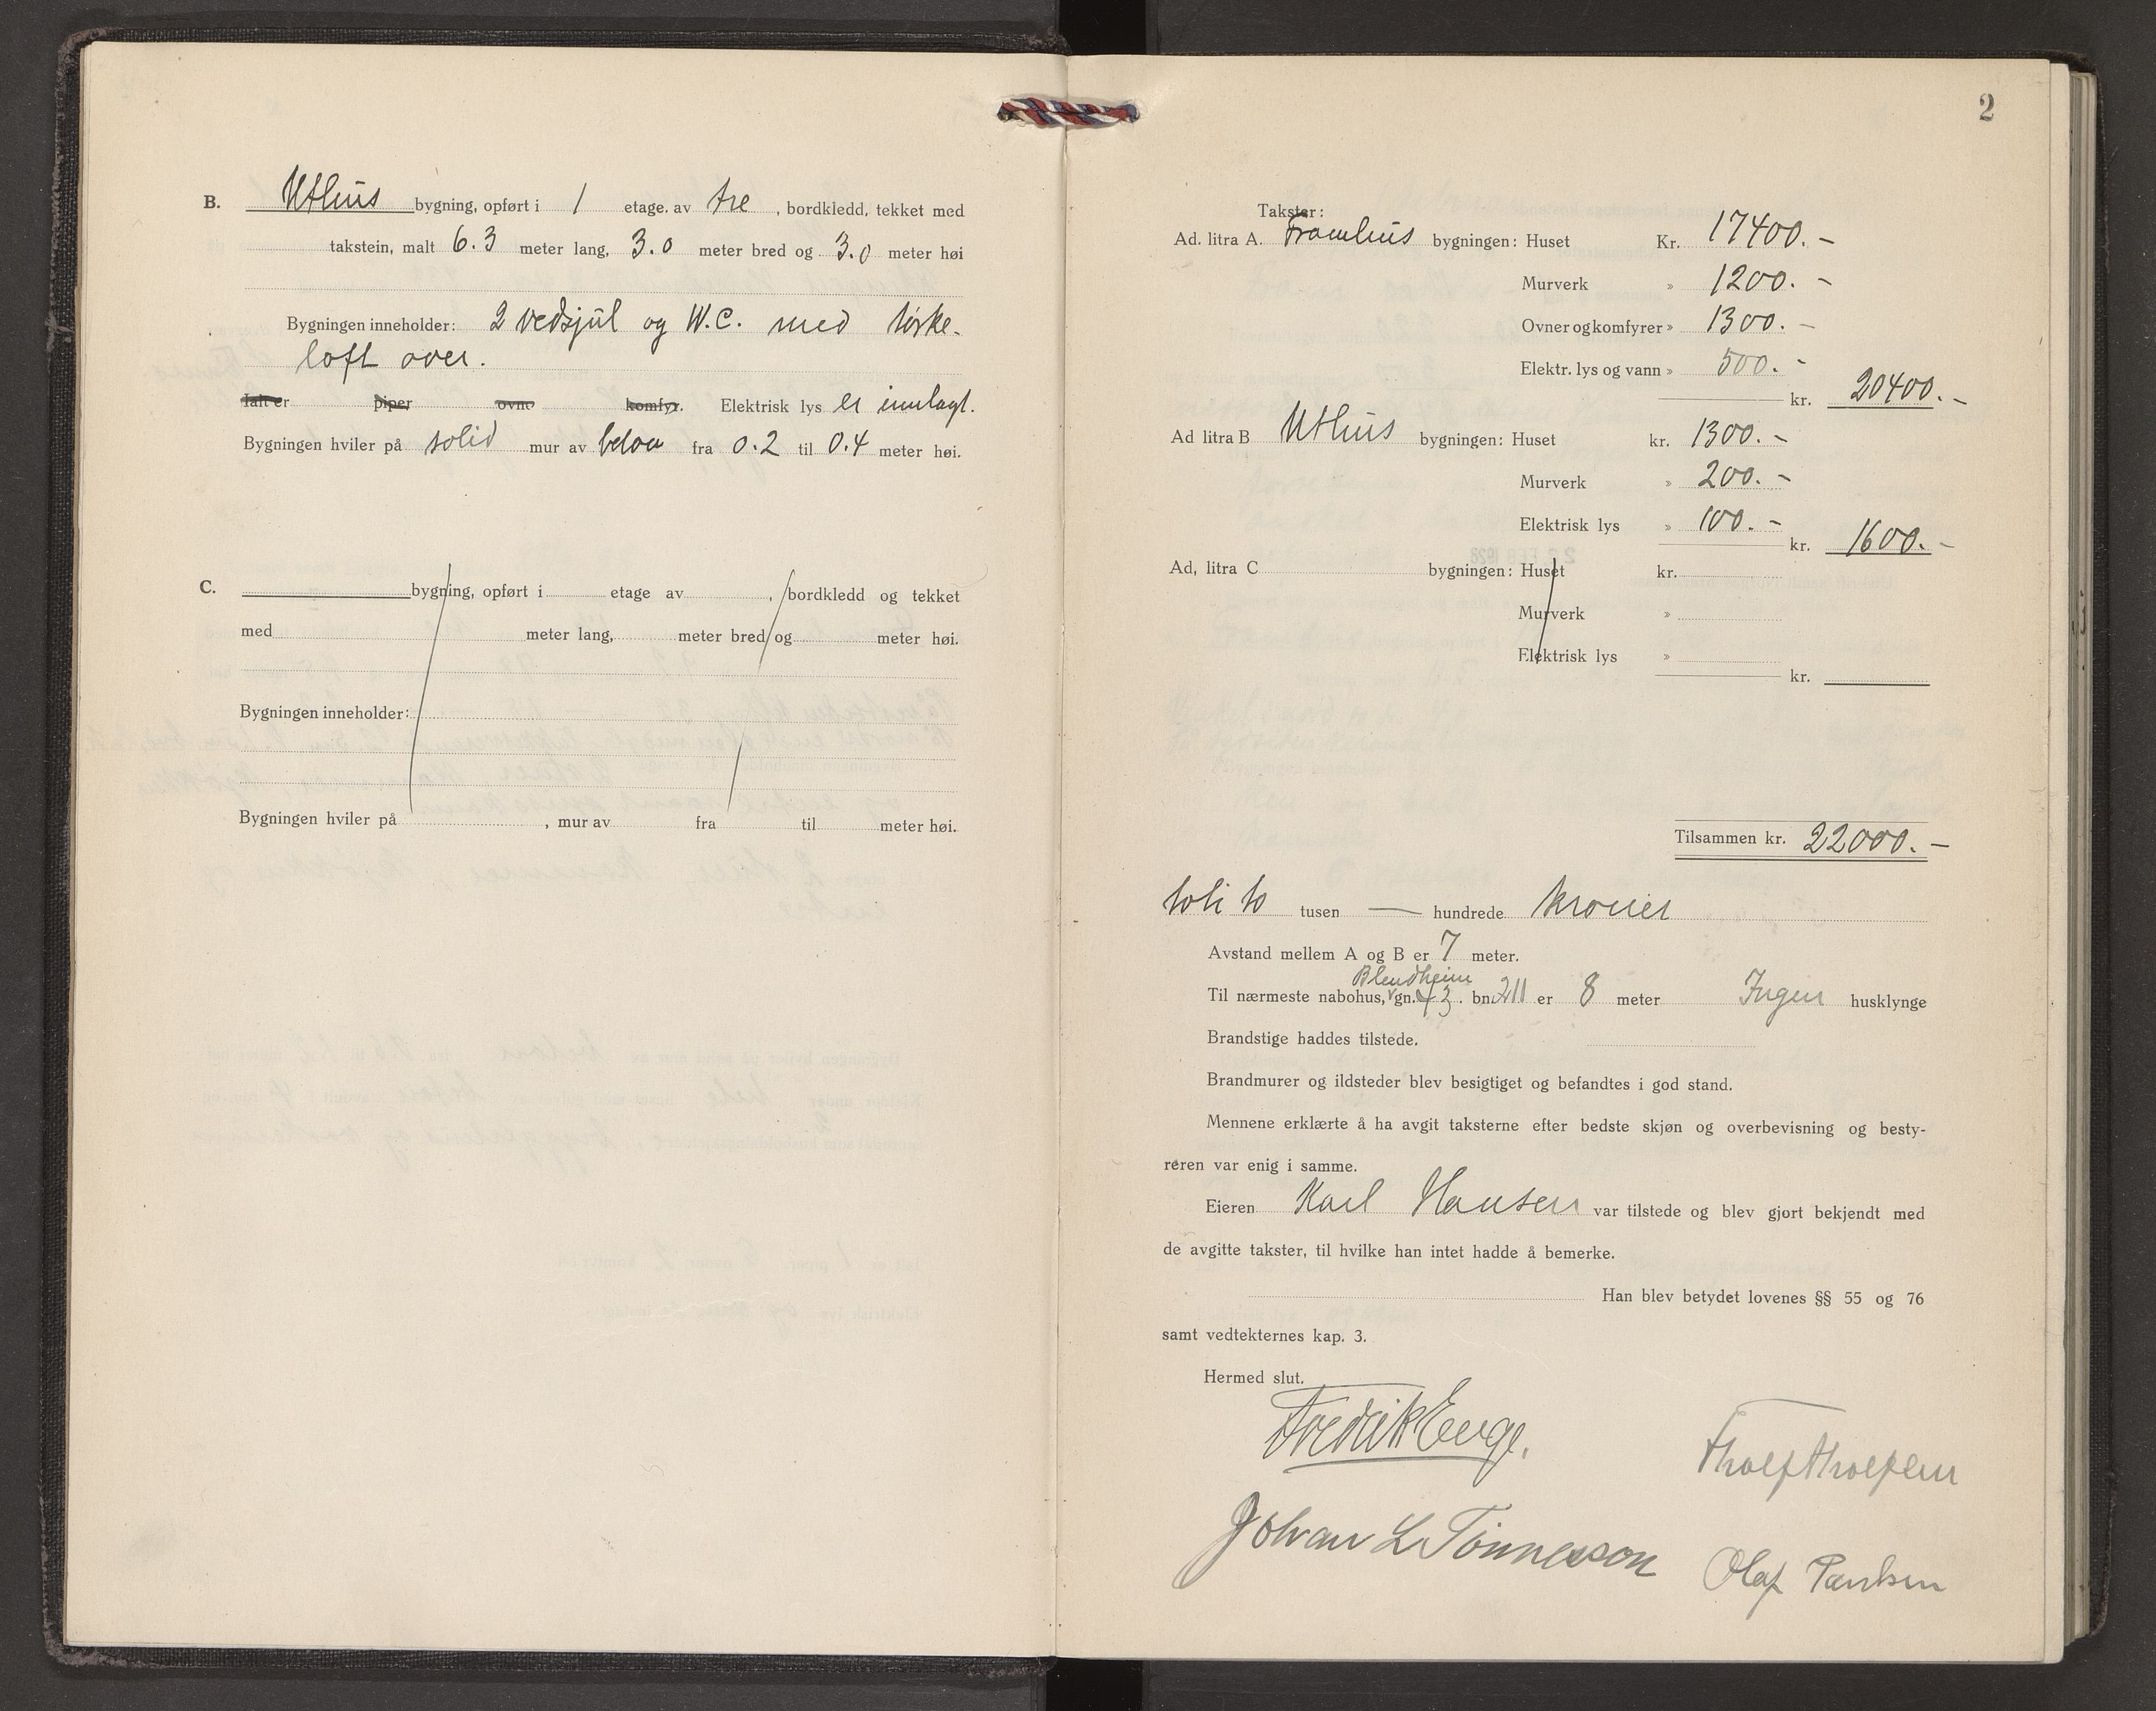 B. Uthus bygning, opført i 1 etage. av tre , bordkledd, tekket med
takstein, malt 6.3 meter lang, 3.0 meter bred og 3.0 meter høi
Bygningen inneholder: 2 vedsjul og W.C. med tørke-
loft over.
Ialt er piper ovne komfyr. Elektrisk lys er innlagt.
Bygningen hviler på solid mur av beton fra 0.2 til 0.4 meter høi.
C. bygning, opført i etage av , bordkledd og tekket
med meter lang, meter bred og meter høi.
Bygningen inneholder:
Bygningen hviler på , mur av fra til meter høi.
2
Takster:
Ad. litra A. Framhus bygningen: Huset Kr. 17400. -
Murverk » 1200. -
Ovner og komfyrer » 1300. -
Elektr. lys og vann » 500. -
kr. 20400. -
Ad litra B Uthus bygningen: Huset kr. 1300. -
Murverk » 200. -
Elektrisk lys » 100. -
kr. 1600. -
Ad, litra C bygningen: Huset kr.
Murverk »
Elektrisk lys »
kr.
Tilsammen kr. 22000. -
toti to tusen — hundrede kroner
Avstand mellem A og B er 7 meter.
Blendheim
Til nærmeste nabohus, gn. 43. bn. 211 er 8 meter Ingen husklynge
Brandstige haddes tilstede.
Brandmurer og ildsteder blev besigtiget og befandtes i god stand.
Mennene erklærte å ha avgit taksterne efter bedste skjøn og overbevisning og besty-
reren var enig i samme.
Eieren Karl Hansen var tilstede og blev gjort bekjendt med
de avgitte takster, til hvilke han intet hadde å bemerke.
Han blev betydet lovenes §§ 55 og 76
samt vedtekternes kap. 3.
Hermed slut.
Fredrik Enge.
Johan L Tønnesson Olaf Paulsen